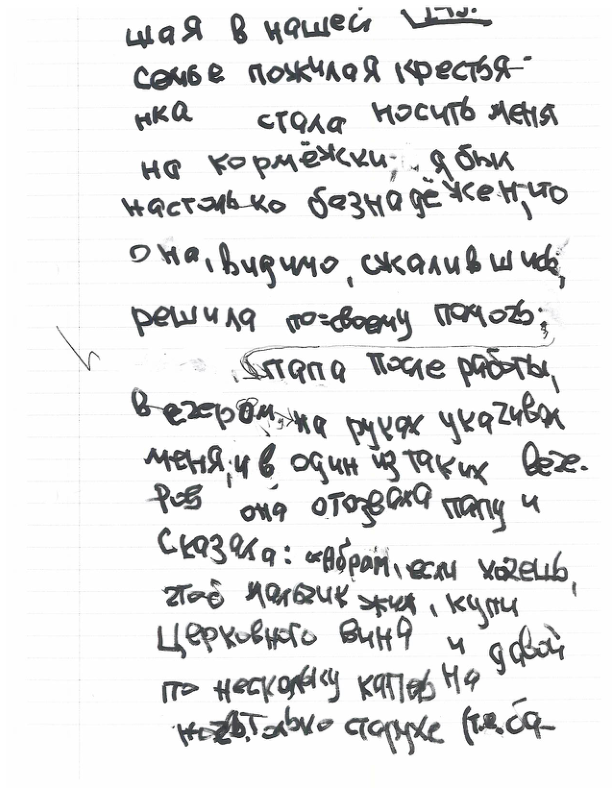 шая в нашей 143.
семье пожилая крестья-
нка стала носить меня
на кормёжки, я был
настолько безнадёжен, что
она, видимо, сжалившись,
решила по-своему помочь:
папа после работы,
вечером, на руках укачивал
меня, и в один из таких вече-
ров она отозвала папу и
сказала: "Абрам, если хочешь,
чтоб мальчик жил, купи
церковного вина и давай
по нескольку капель на
ночь. Только старухе (т.е. ба-